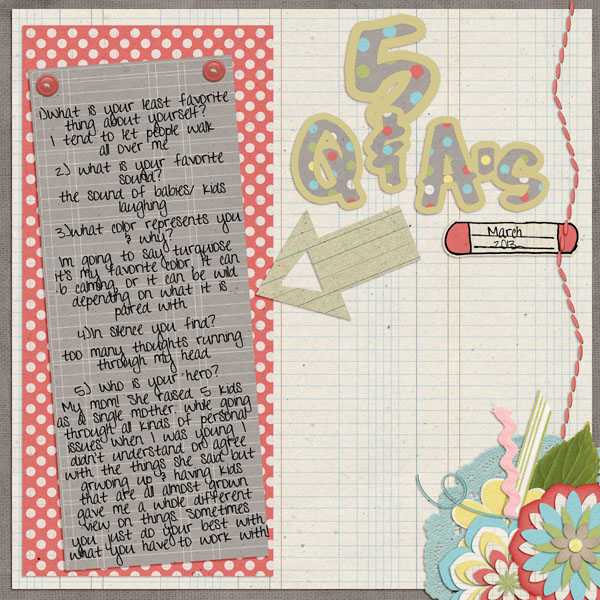 1)What is your least favorite
thing about yourself?
I tend to let people walk
all over me
2) what is your favorite
sound?
the sound of babies/ kids
laughing
3)what color represents you
& why?
Im going to say turquose
it's my favorite color. It can
b calming, or it can be wild
depending on what it is
paired with
4)In silence you find?
too many thoughts running
through my head
5) who is your hero?
My mom! She raised 5 kids
as a single mother, while going
through all kinds of personal
issues when I was young I
didn't understand or agree
with the things she said but
gruwoing up & having kids
that are all almost grown
gave me a whole different
view on things. Sometimes
you just do your best with
what you have to work with!
5
&
Q A's
March
2013